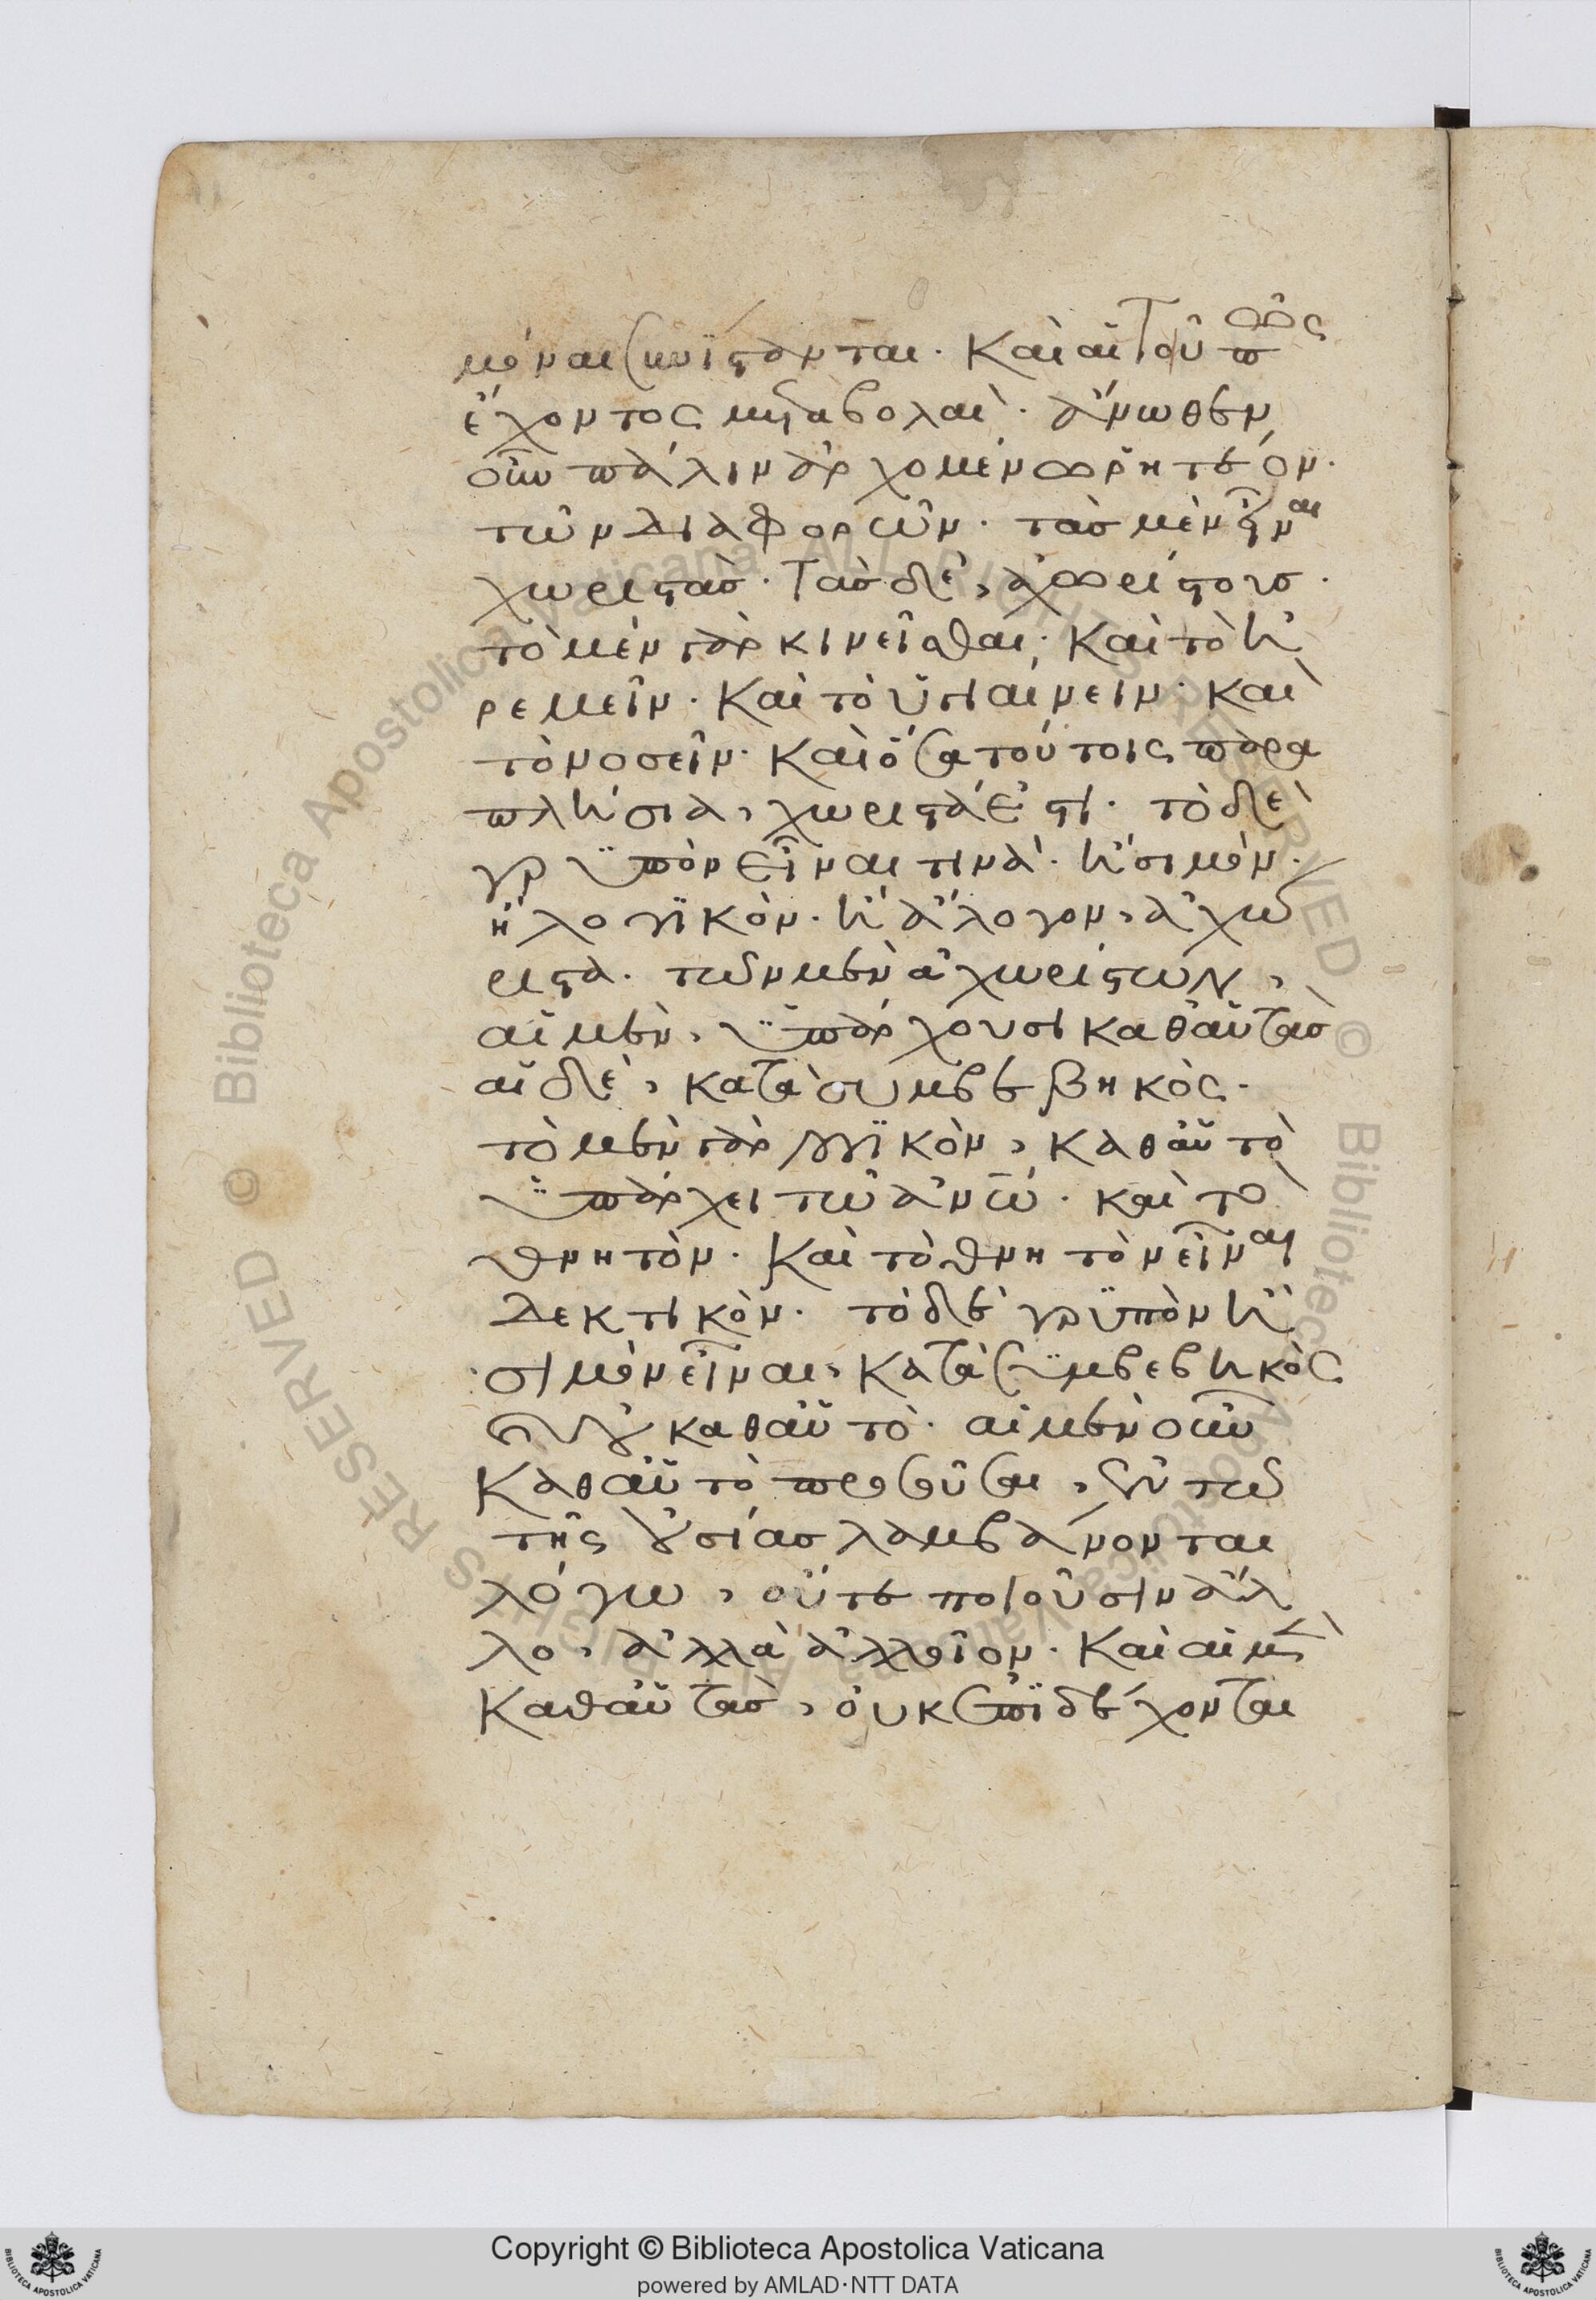 μόναι συνίστανται· καὶ αἱ τοῦ πῶς
ἔχοντος μεταβολαί· ἄνωθεν
οὖν πάλιν ἀρχομένω ῥητέον·
τῶν διαφορῶν· τὰσ μὲν εἶναι
χωριστὰσ· τὰσ δὲ, ἀχωρίστουσ·
τὸ μὲν γὰρ κινεῖσθαι· καὶ τὸ ἠ
ρεμεῖν· καὶ τὸ ὑγιαίνειν· καὶ
τὸ νοσεῖν· καὶ ὅσα τούτοις παρα
πλήσια, χωριστά ἐστι· τὸ δὲ
γρυπὸν εἶναι τινὰ· ἢ σιμόν·
ἢ λογικὸν· ἢ ἄλογον, ἀχώ
ριστα· τῶν μὲν ἀχωρίστων,
αἱ μὲν, ὑπάρχουσι καθ αὑτὰσ
αἱ δὲ, κατὰ συμβεβηκὸς·
τὸ μὲν γὰρ λογικὸν, καθ αὑτὸ
ὑπάρχει τῶ ἀνω· καὶ τὸ
θνητὸν· καὶ τὸ θνητὸν εἶναι
δεκτικὸν· τὸ δὲ γρυπὸν ἢ
σιμὸν εἶναι, κατὰ συμβεβηκὸς
καὶ οὐ καθ αὑτὸ· αἱ μὲν οὖν
καθ αὑτὸ προσοῦσαι, ἐν τῶ
τῆς οὐσίασ λαμβάνονται
λόγω, οὔτε ποιοῦσιν ἄλ
λο, ἀλλὰ ἀλλοῖον· καὶ αἱ μὲν
καθ αὑτὰσ, ουκ ἐπιδέχονται
Copyright © Biblioteca Apostolica Vaticana
powered by AMLAD·NTT DATA